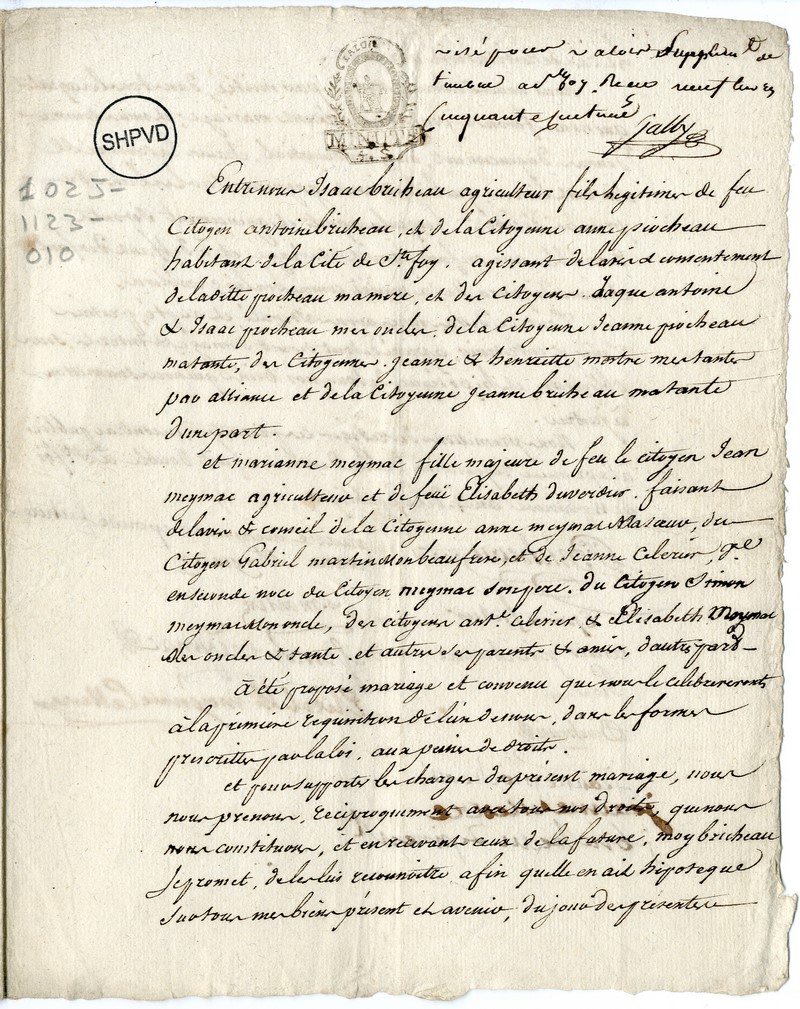 visé pour valoir Supplemt de
timbre a Ste foy. Recu neuf livres
Cinquante
Jalby
MINUTE
SHPVD
1025-
1123-
010
Entrenous Isaac bricheau agriculteur fils legitime de feu
Citoyen antoine bricheau, et de la Citoyenne anne piocheau
habitant de la Cité de Ste foy. agissant de lavis & consentement
de laditte piocheau mamere, et des Citoyens. Jaque antoine
& Isaac piocheau mes oncles, de la Citoyenne Jeanne piocheau
matante, des Citoyennes. jeanne & henriette mestre mes tantes
par alliance et de la Citoyenne jeanne bricheau matante
dune part.
et marianne meymac fille majeure de feu le citoyen Jean
meymac agriculteur et de feüe Elisabeth duverdier. faisant
de lavis & conseil de la Citoyenne anne meymac Masœur, du
Citoyen Gabriel martin Monbeaufrere, et de Jeanne Celerier,
en seconde noce du Citoyen meymac Son pere. du Citoyen Simon
meymac Mon oncle, des citoyens ante. celerier & Elisabeth Meymac
Ses oncles & tante. et autres ses parents & amis, dautre pard
à été proposé mariage et convenu que nous le celebrerons
à la premiere requisition de lun de nous, dans les formes
prescrittes par la loi, aux peines de droits.
et pour supporter les charges du présent mariage, nous
nous prenons, reciproquement avec tous nos droits, que nous
nous constituons, et en recevant ceux de la future, moy bricheau
Je promet, de les lui reconnoitre afin quelle en ait hipoteque
Sur tous mes biens présent et avenir, du jour des présentes